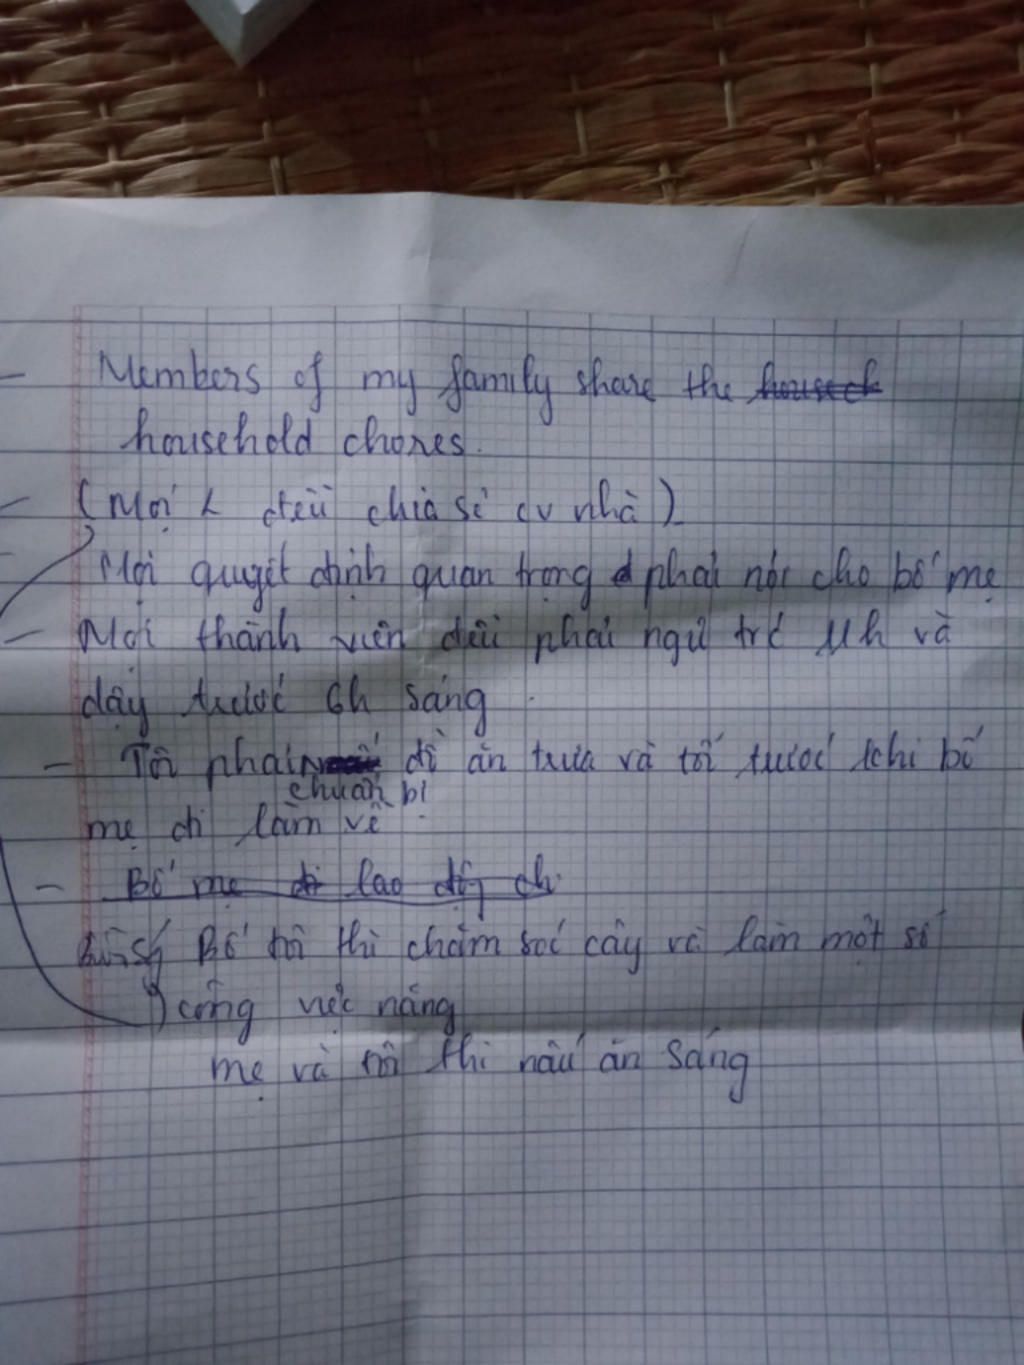 - Members of my family share the househ
household chores.
- (Mọi < đều chia sẻ cv nhà)
- Mọi quyết định quan trọng phải nói cho bố mẹ
- Mọi thành viên đều phải ngủ trc 11h và
dậy trước 6h sáng
- Tôi phải đồ ăn trưa và tối trước khi bố
chuẩn bị
mẹ đi làm về
- Bố mẹ đi lao động ch
Bố tôi thì chăm sóc cây và làm một số
công việc nặng
mẹ và tôi thì nấu ăn sáng